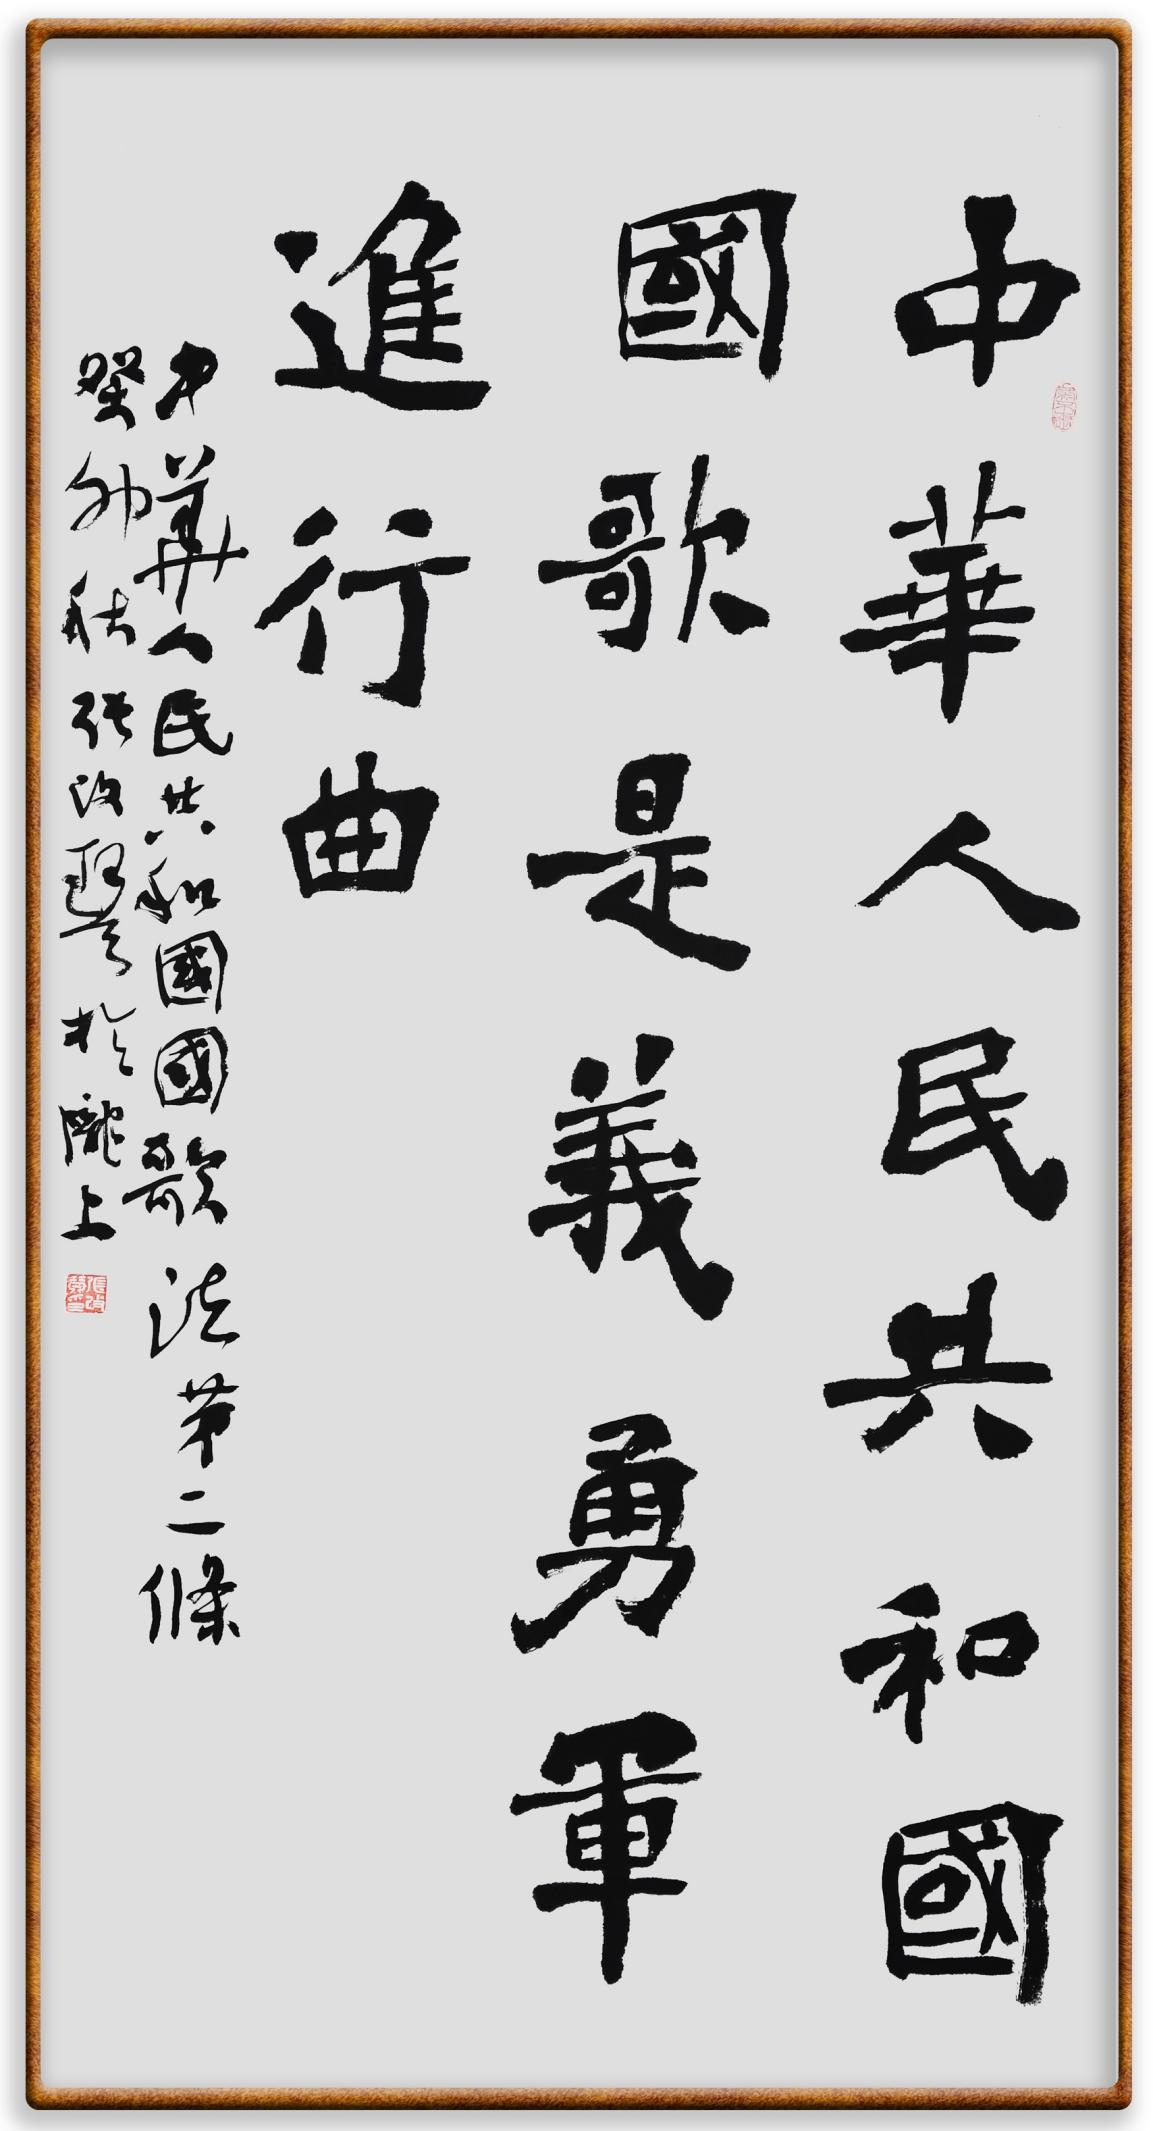 中華人民共和國
國歌是義勇軍
進行曲
中華人民共和國國歌法第二條
癸卯秋張改琴書於隴上